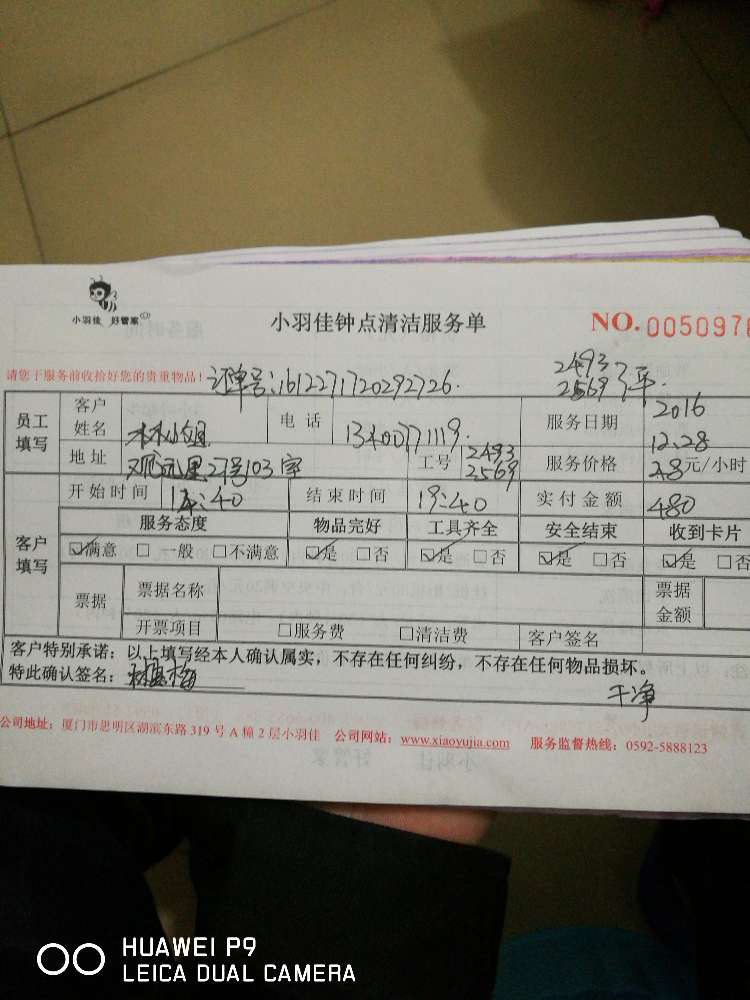 小羽佳 好管家
小羽佳钟点清洁服务单
NO. 0050976
请您于服务前收拾好您的贵重物品！
订单号:1612271720292726.
2493
2569
员工填写
客户姓名 林小姐
电话
服务日期 2016 12.28
地址 27号103室
工号 2493 2569
服务价格 28元/小时
开始时间 :40
结束时间 19:40
实付金额 480
客户填写
服务态度 物品完好 工具齐全 安全结束 收到卡片
☑满意 □一般 □不满意 ☑是 □否 ☑是 □否 ☑是 □否 ☑是 □否
票据 票据名称 票据金额
开票项目 □服务费 □清洁费 客户签名
客户特别承诺：以上填写经本人确认属实，不存在任何纠纷，不存在任何物品损坏。
特此确认签名：
干净
公司地址：厦门市思明区湖滨东路 319 号 A 幢 2 层小羽佳 公司网站：www.xiaoyujia.com 服务监督热线：0592-5888123
HUAWEI P9
LEICA DUAL CAMERA